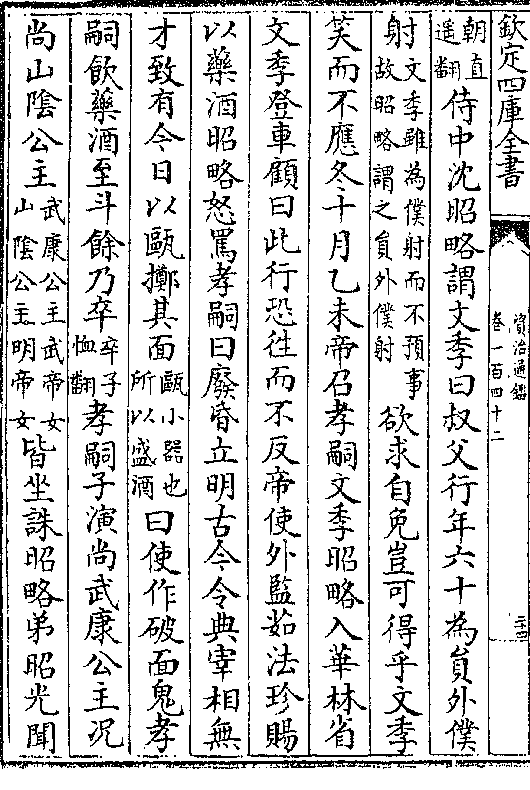 欽定四庫全書
資治通鑑
卷一百四十二
三四
朝直
遥翻
侍中沈昭略謂文季曰叔父行年六十為員外僕
射
文季雖為僕射而不預事
故昭略謂之員外僕射
欲求自免豈可得乎文季
笑而不應冬十月乙未帝召孝嗣文季昭略入華林省
文季登車顧曰此行恐往而不反帝使外監茹法珍賜
以藥酒昭略怒罵孝嗣曰廢昏立明古今令典宰相無
才致有今日以甌擲其面
甌小器也
所以盛酒
曰使作破面鬼孝
嗣飲藥酒至斗餘乃卒
卒子
恤翻
孝嗣子演尚武康公主况
尚山隂公主
武康公主武帝女
山隂公主明帝女
皆坐誅昭略弟昭光聞